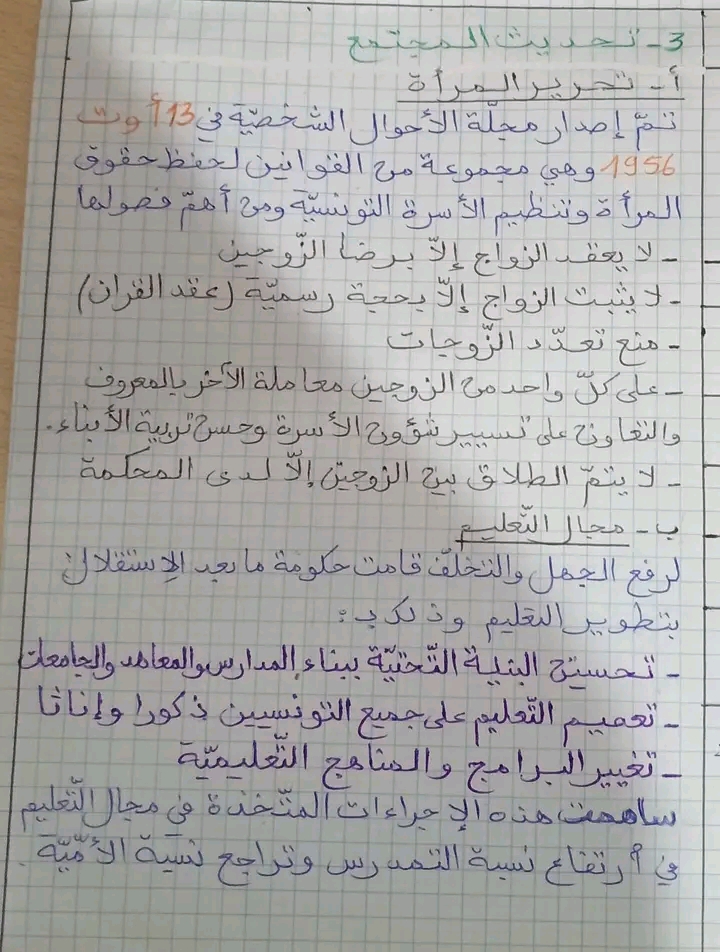 3 - تحديث المجتمع
أ - تحرير المرأة
تمّ إصدار مجلّة الأحوال الشخصيّة في 13 أوت
1956 وهي مجموعة من القوانين لحفظ حقوق
المرأة وتنظيم الأسرة التونسيّة ومن أهمّ فصولها
- لا يعقد الزواج إلاّ برضا الزّوجين
- لا يثبت الزواج إلاّ بحجة رسميّة (عقد القران)
- منع تعدّد الزّوجات
- على كلّ واحد من الزوجين معاملة الآخر بالمعروف
والتعاون على تسيير شؤون الأسرة وحسن تربية الأبناء.
- لا يتمّ الطلاق بين الزوجين إلاّ لدى المحكمة
ب - مجال التّعليم
لرفع الجهل والتخلّف قامت حكومة ما بعد الإستقلال
بتطوير التعليم وذلك ب :
- تحسين البنية التّحتيّة ببناء المدارس والمعاهد والجامعات
- تعميم التّعليم على جميع التونسيين ذكورا وإناثا
- تغيير البرامج والمناهج التّعليميّة
ساهمت هذه الإجراءات المتّخذة في مجال التّعليم
في أرتفاع نسبة التمدرس وتراجع نسبة الأمّيّة